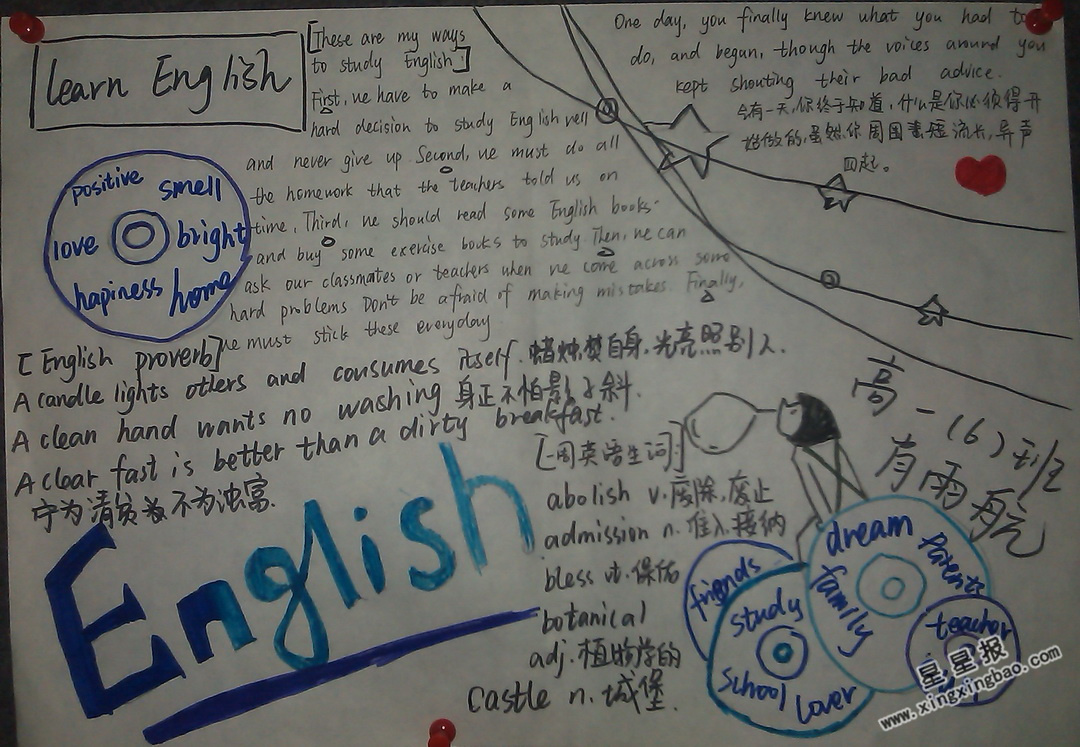 learn English
[These are my ways
to study English]
First, we have to make a
hard decision to study English well
and never give up Second, we must do all
the homework that the teachers told us on
time, Third, we should read some English books
and buy some exercise books to study Then, we can
ask our classmates or teachers when we come across some
hard problems Don't be afraid of making mistakes. Finally,
we must stick these everyday
One day, you finally knew what you had to
do, and begun, though the voices around you
kept shouting their bad advice.
今有一天,你终于知道,什么是你必须得开
始做的,虽然你周围蜚短流长,异声
四起。
positive
smell
love
bright
hapiness
home
[English proverb]
A candle lights others and consumes itself. 蜡烛焚自身,光亮照别人.
A clean hand wants no washing 身正不怕影子斜.
A clear fast is better than a dirty breakfast.
宁为清贫,不为浊富.
English
[一周英语生词]
abolish v.废除,废止
admission n.准入,接纳
bless vt.保佑
botanical
adj.植物学的
castle n.城堡.
高一(6)班
肖雨航
friends
study
school
lover
dream
family
parents
teacher
星星报
www.xingxingbao.com